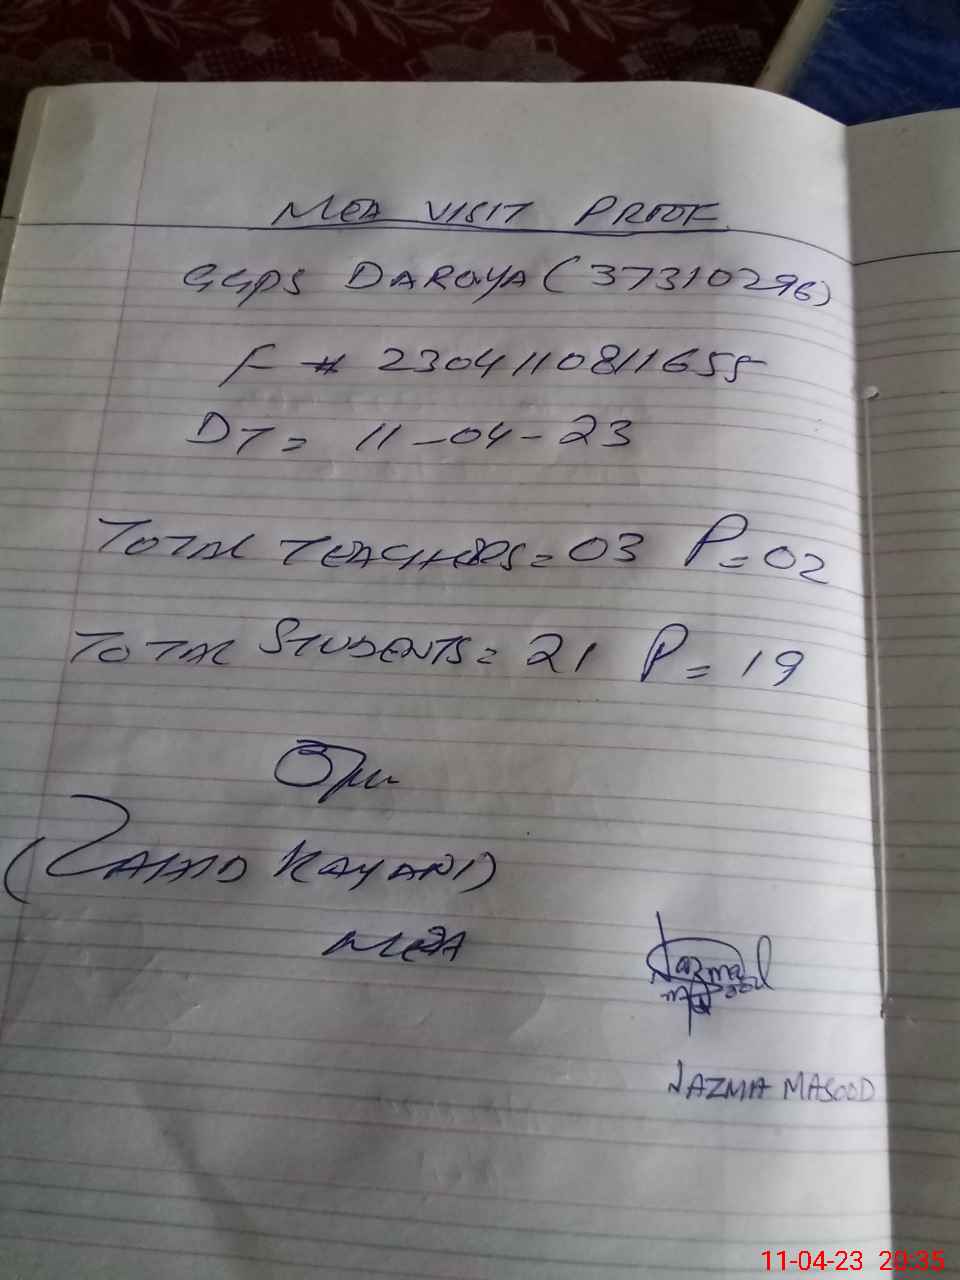 MEA VISIT PROOF
GGPS DAROYA (37310296)
F # 2304110811655
DT = 11-04-23
TOTAL TEACHERS = 03 P = 02
TOTAL STUDENTS = 21 P = 19
(ZAHID KAYANI)
MEA
Nazma
Masood
NAZMA MASOOD
11-04-23 20:35